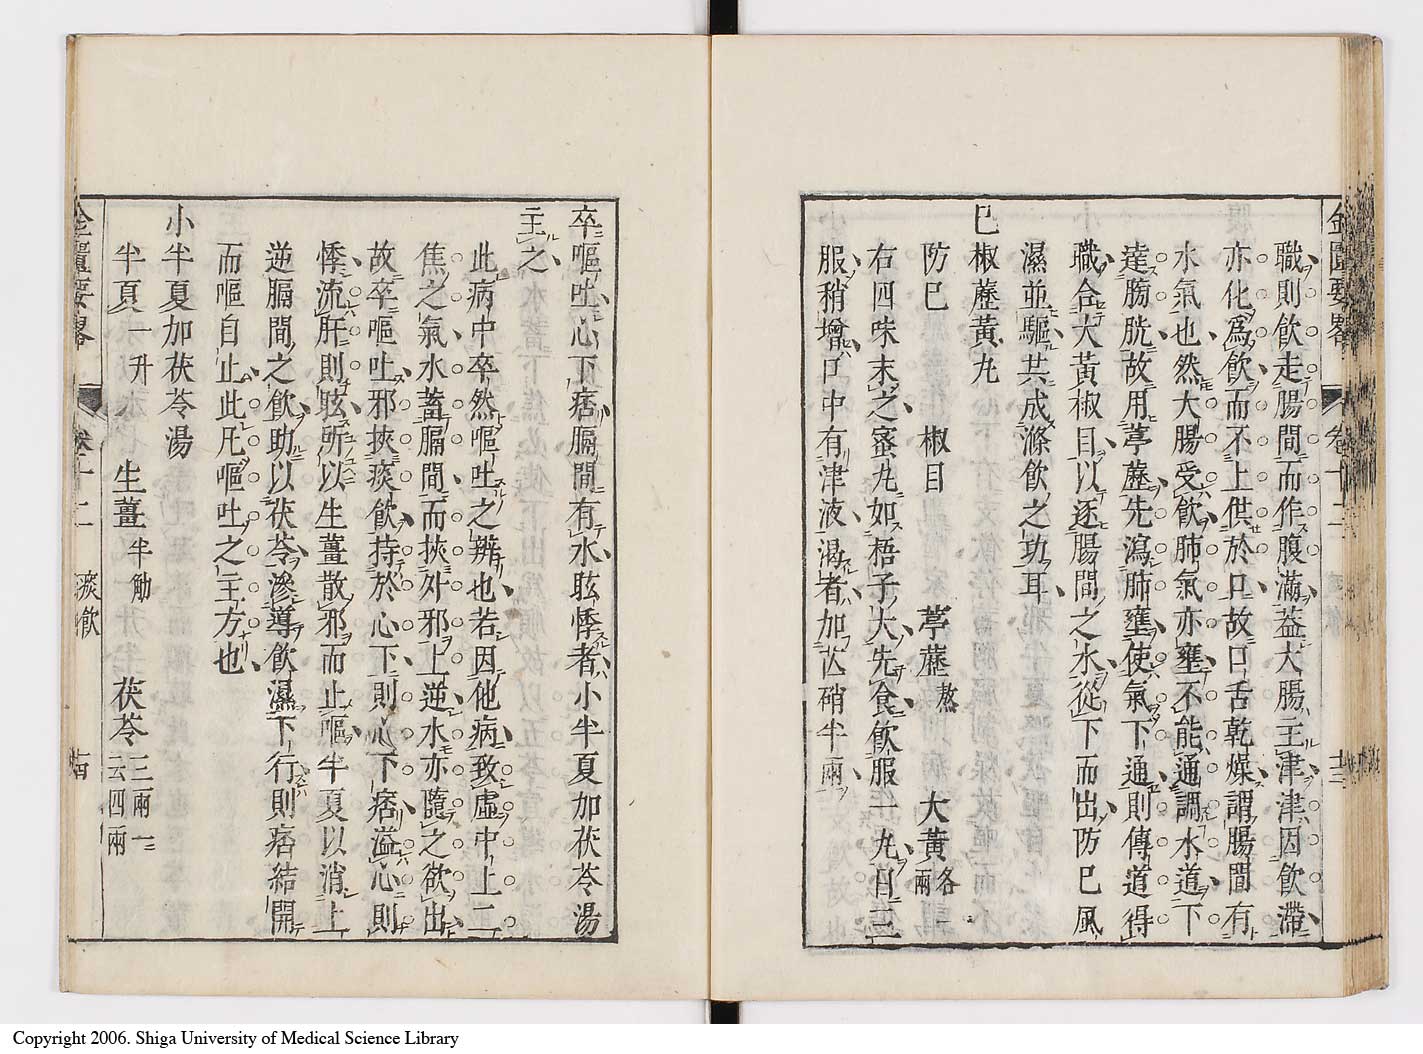 職則飲走腸間而作腹滿蓋大腸主津津因飲滯
亦化為飲而不上供於口故口舌乾燥謂腸間有
水氣也然大腸受飲肺氣亦壅不能通調水道下
達膀胱故用葶藶先瀉肺壅使氣下通則傳道得
職合大黃椒目以逐腸間之水從下而出防巳風
濕並驅共成滌飲之功耳
巳椒藶黃丸
防巳 椒目 葶藶熬 大黃各一兩
右四味末之蜜丸如梧子大先食飲服一丸日三
服稍增口中有津液渴者加芒硝半兩
卒嘔吐心下痞膈間有水眩悸者小半夏加茯苓湯
主之
此病中卒然嘔吐之辨也若因他病致虛中上二
焦之氣水蓄膈間而挾外邪上逆水亦隨之欲出
故卒嘔吐邪挾痰飲持於心下則心下痞溢心則
悸流肝則眩所以生薑散邪而止嘔半夏以消上
逆膈間之飲助以茯苓滲導飲濕下行則痞結開
而嘔自止此凡嘔吐之主方也
小半夏加茯苓湯
半夏一升 生薑半觔 茯苓三兩一云四兩
卷十二 痰飲
Copyright 2006. Shiga University of Medical Science Library